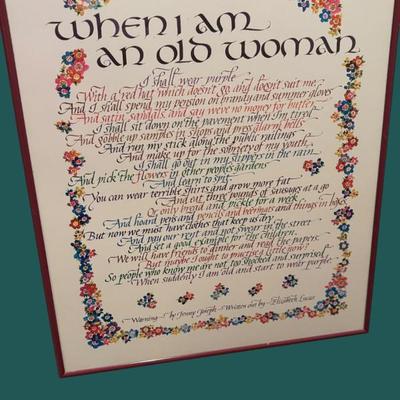 WHEN I AM
AN OLD WOMAN
I shall wear purple
With a red hat which doesn't go, and doesn't suit me,
And I shall spend my pension on brandy and summer gloves
And satin sandals, and say we've no money for butter.
I shall sit down on the pavement when I'm tired
And gobble up samples in shops and press alarm bells
And run my stick along the public railings
And make up for the sobriety of my youth.
I shall go out in my slippers in the rain
And pick the flowers in other people's gardens
And learn to spit.
You can wear terrible shirts and grow more fat
And eat three pounds of sausages at a go
Or only bread and pickle for a week
And hoard pens and pencils and beermats and things in boxes.
But now we must have clothes that keep us dry
And pay our rent and not swear in the street
And set a good example for the children.
We will have friends to dinner and read the papers.
But maybe I ought to practise a little now?
So people who know me are not too shocked and surprised
When suddenly I am old and start to wear purple.
Warning - by Jenny Joseph - Written out by - Elizabeth Lucas